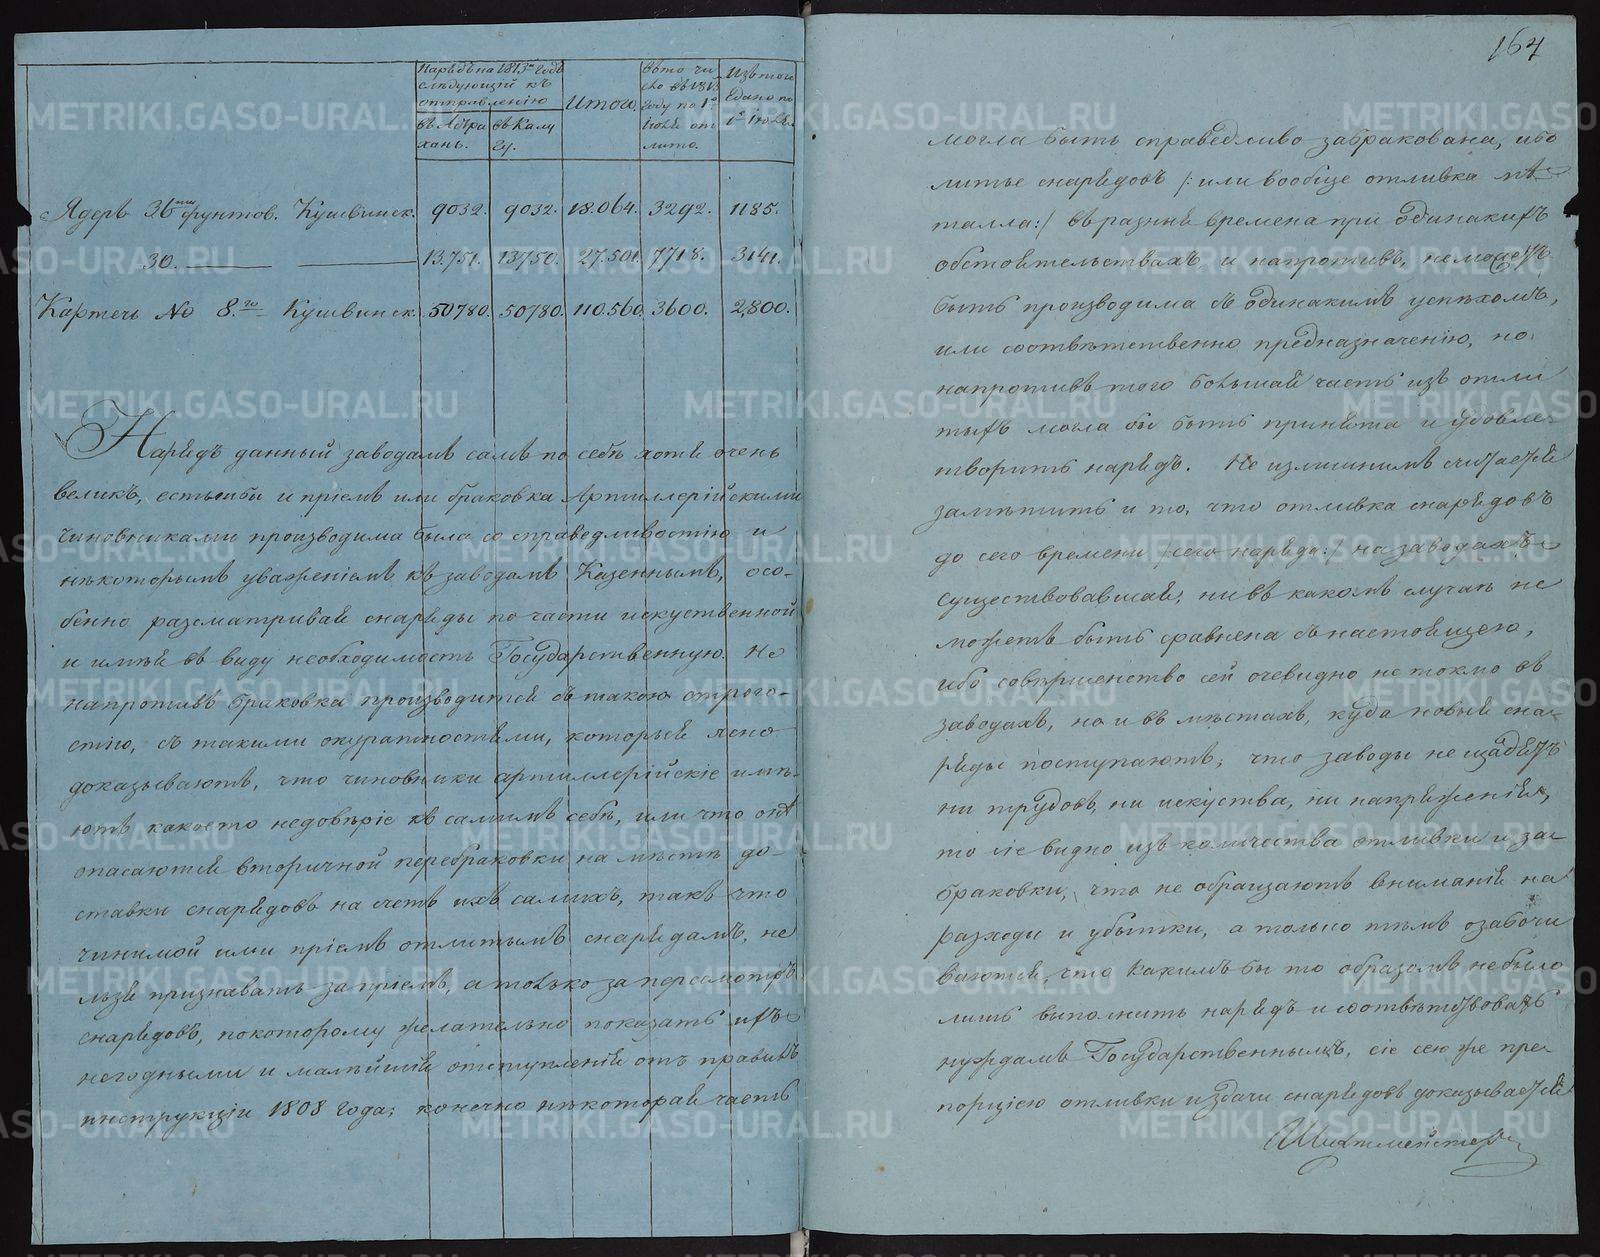 164
Нарядъ на 1813й годъ
слѣдующій къ
отправленію
въ Астра
хань.
въ Калу
гу.
Итого.
въ то чи
сло въ 1813
году по 1е
Іюля от
лито.
Изъ того
сдано по
1е Іюля.
Ядеръ 36ти фунтов. Кушвинск. 9032. 9032. 18.064. 3292. 1185.
30. 13.751. 13750. 27.501. 7718. 3141.
Картечь No 8го Кушвинск. 50780. 50780. 110.560. 3600. 2,800.
Нарядъ данный заводамъ самъ по себѣ хотя очень
великъ, естьлибы и пріемъ или браковка Артиллерійскими
чиновниками производима была со справедливостію и
нѣкоторымъ уваженіемъ къ заводамъ Казеннымъ, осо-
бенно разсматривая снаряды по части искуственной
и имѣя въ виду необходимость Государственную. Но
напротивъ браковка производится съ такою строго-
стію, съ такими окуратностями, которыя ясно
доказываютъ, что чиновники артиллерійскіе имѣ-
ютъ какоето недовѣріе къ самимъ себѣ, или что онѣ
опасаются вторичной перебраковки на мѣстѣ до-
ставки снарядовъ на счетъ ихъ самихъ, такъ что
чинимой ими пріемъ отлитымъ снарядамъ, не
льзя признавать за пріемъ, а только за пересмотръ
снарядовъ, покоторому желательно показать ихъ
негодными и малѣйшія отступленія отъ правилъ
инструкціи 1808 года; конечно нѣкоторая часть
могла быть справедливо забракована, ибо
литье снарядовъ /: или вообще отливка мѣ-
талла :/ въ разныя времена при одинакихъ
обстоятельствахъ и напротивъ, неможетъ
быть производима съ одинакимъ успѣхомъ,
или соотвѣтственно предназначенію, но
напротивъ того большая часть изъ отли
тыхъ могла бы быть принята и удовле-
творить нарядъ. Не излишнимъ считается
замѣтить и то, что отливка снарядовъ
до сего времени /: сего наряда :/ на заводахъ
существовавшая, ни въ какомъ случаѣ не
можетъ быть сравнена съ настоящею,
ибо совершенство сей очевидно не токмо въ
заводахъ, но и въ мѣстахъ, куда новыя сна-
ряды поступаютъ; что заводы не щадятъ
ни трудовъ, ни искуства, ни напряженія,
то сіе видно изъ количества отливки и за-
браковки, что не обращаютъ вниманія на
разходы и убытки, а только тѣмъ озабочи
ваются, что какимъ бы то образомъ небыло
лишь выполнить нарядъ и соотвѣтствовать
нуждамъ Государственнымъ, сіе сею же про-
порціею отливки издачи снарядовъ доказывается
Шихтмейстеръ